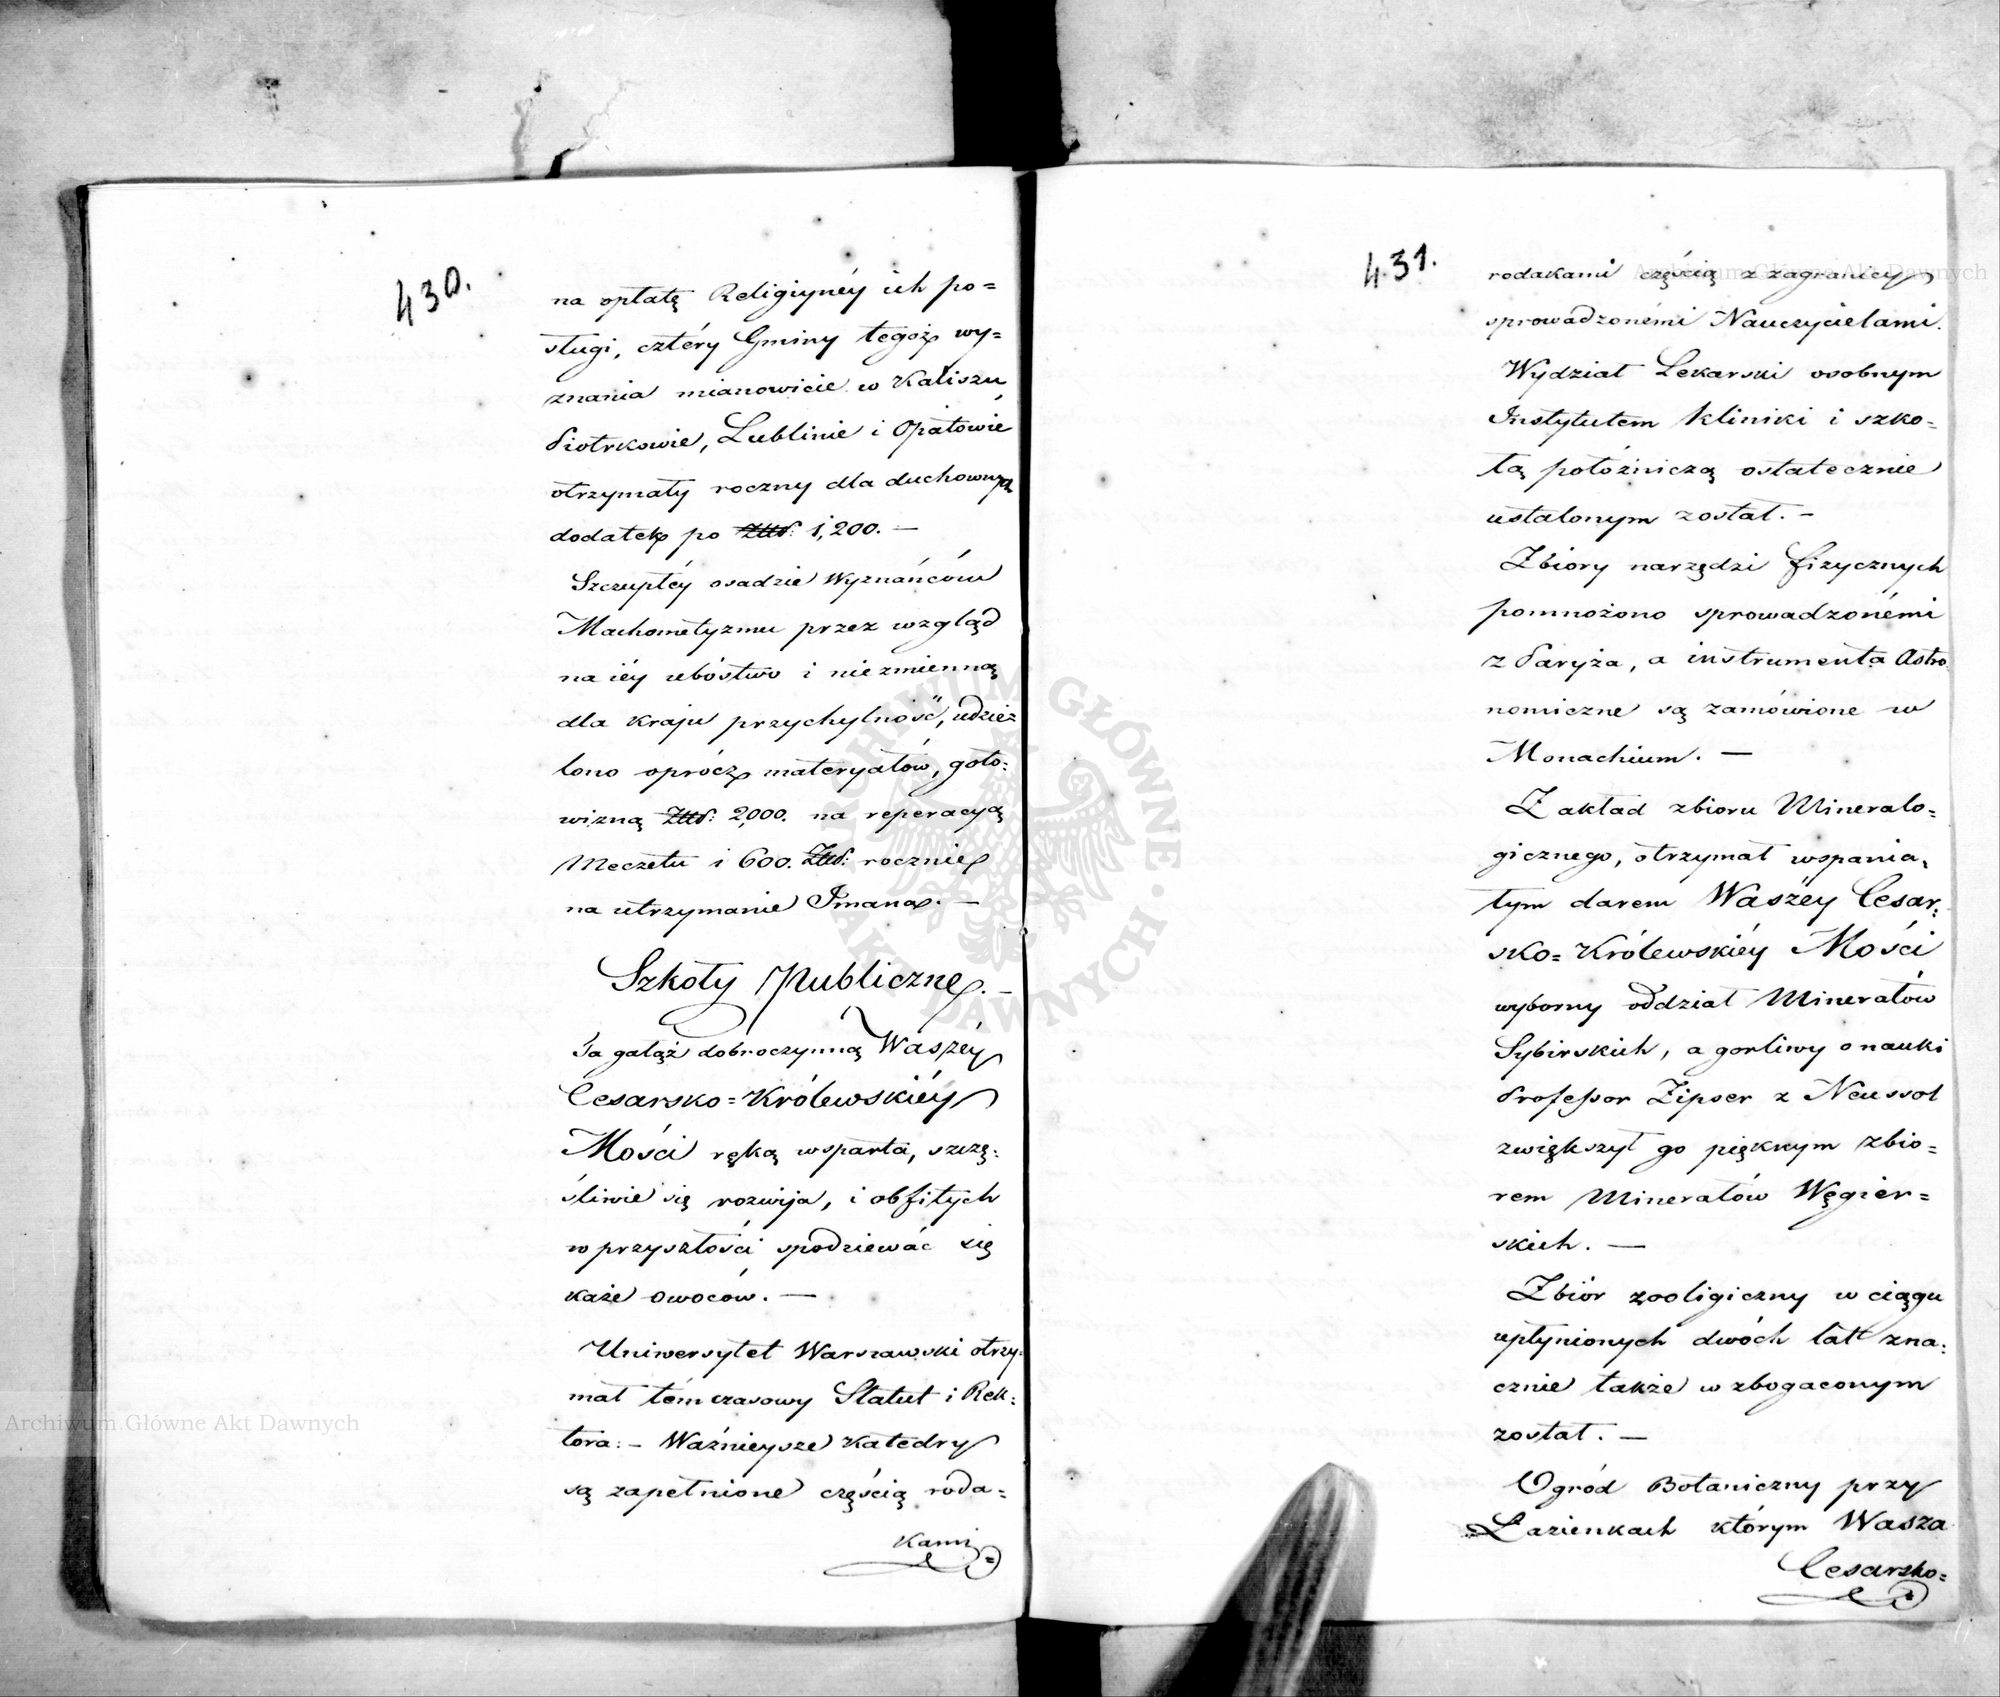 430.
na opłatę Religiynéy ich po=
sługi, cztéry Gminy tegoż wy=
znania mianowicie w Kaliszu
Piotrkowie, Lublinie i Opatowie
otrzymały roczny dla duchownych
dodatek po Złłp: 1,200. —
Szczupłéy osadzie Wyznańców
Machometyzmu przez wzgląd
na iéy ubóstwo i niezmienną
dla kraju przychylność, udzie=
lono oprócz materyałów, goto=
wizną Złłp: 2,000. na reperacyą
Meczetu i 600. Złłp: rocznie
na utrzymanie Imana. —
Szkoły Publiczne. —
Ta gałąź dobroczynną Waszéy
Cesarsko=Królewskiéy
Mości ręką wsparta, szczę=
śliwie się rozwija, i obfitych
w przyszłości spodziewać się
każe owoców. —
Uniwersytet Warszawski otrzy=
mał tém czasowy Statut i Rek=
tora. — Ważnieysze Katedry
są zapełnione częścią roda=
kami
431.
rodakami częścią z zagranicy
sprowadzonémi Nauczycielami.
Wydział Lekarski osobnym
Instytutem kliniki i szko=
łą położniczą ostatecznie
ustalonym został. —
Zbiory narzędzi fizycznych
pomnożono sprowadzonémi
z Paryża, a instrumenta Astro=
nomiczne są zamówione w
Monachium. —
Zakład zbioru Mineralo=
gicznego, otrzymał wspania=
łym darem Waszéy Cesar=
sko=Królewskiéy Mości
wyborny oddział Minerałów
Sybirskich, a gorliwy o nauki
Professor Zipser z Neussol
zwiększył go pięknym zbio=
rem Minerałów Węgier=
skich. —
Zbiór zooligiczny w ciągu
upłynionych dwóch lat zna=
cznie także wzbogaconym
został. —
Ogród Botaniczny przy
Łazienkach którym Wasza
Cesarsko=
Archiwum Główne Akt Dawnych
Archiwum Główne Akt Dawnych
ARCHIWUM GŁÓWNE AKT DAWNYCH